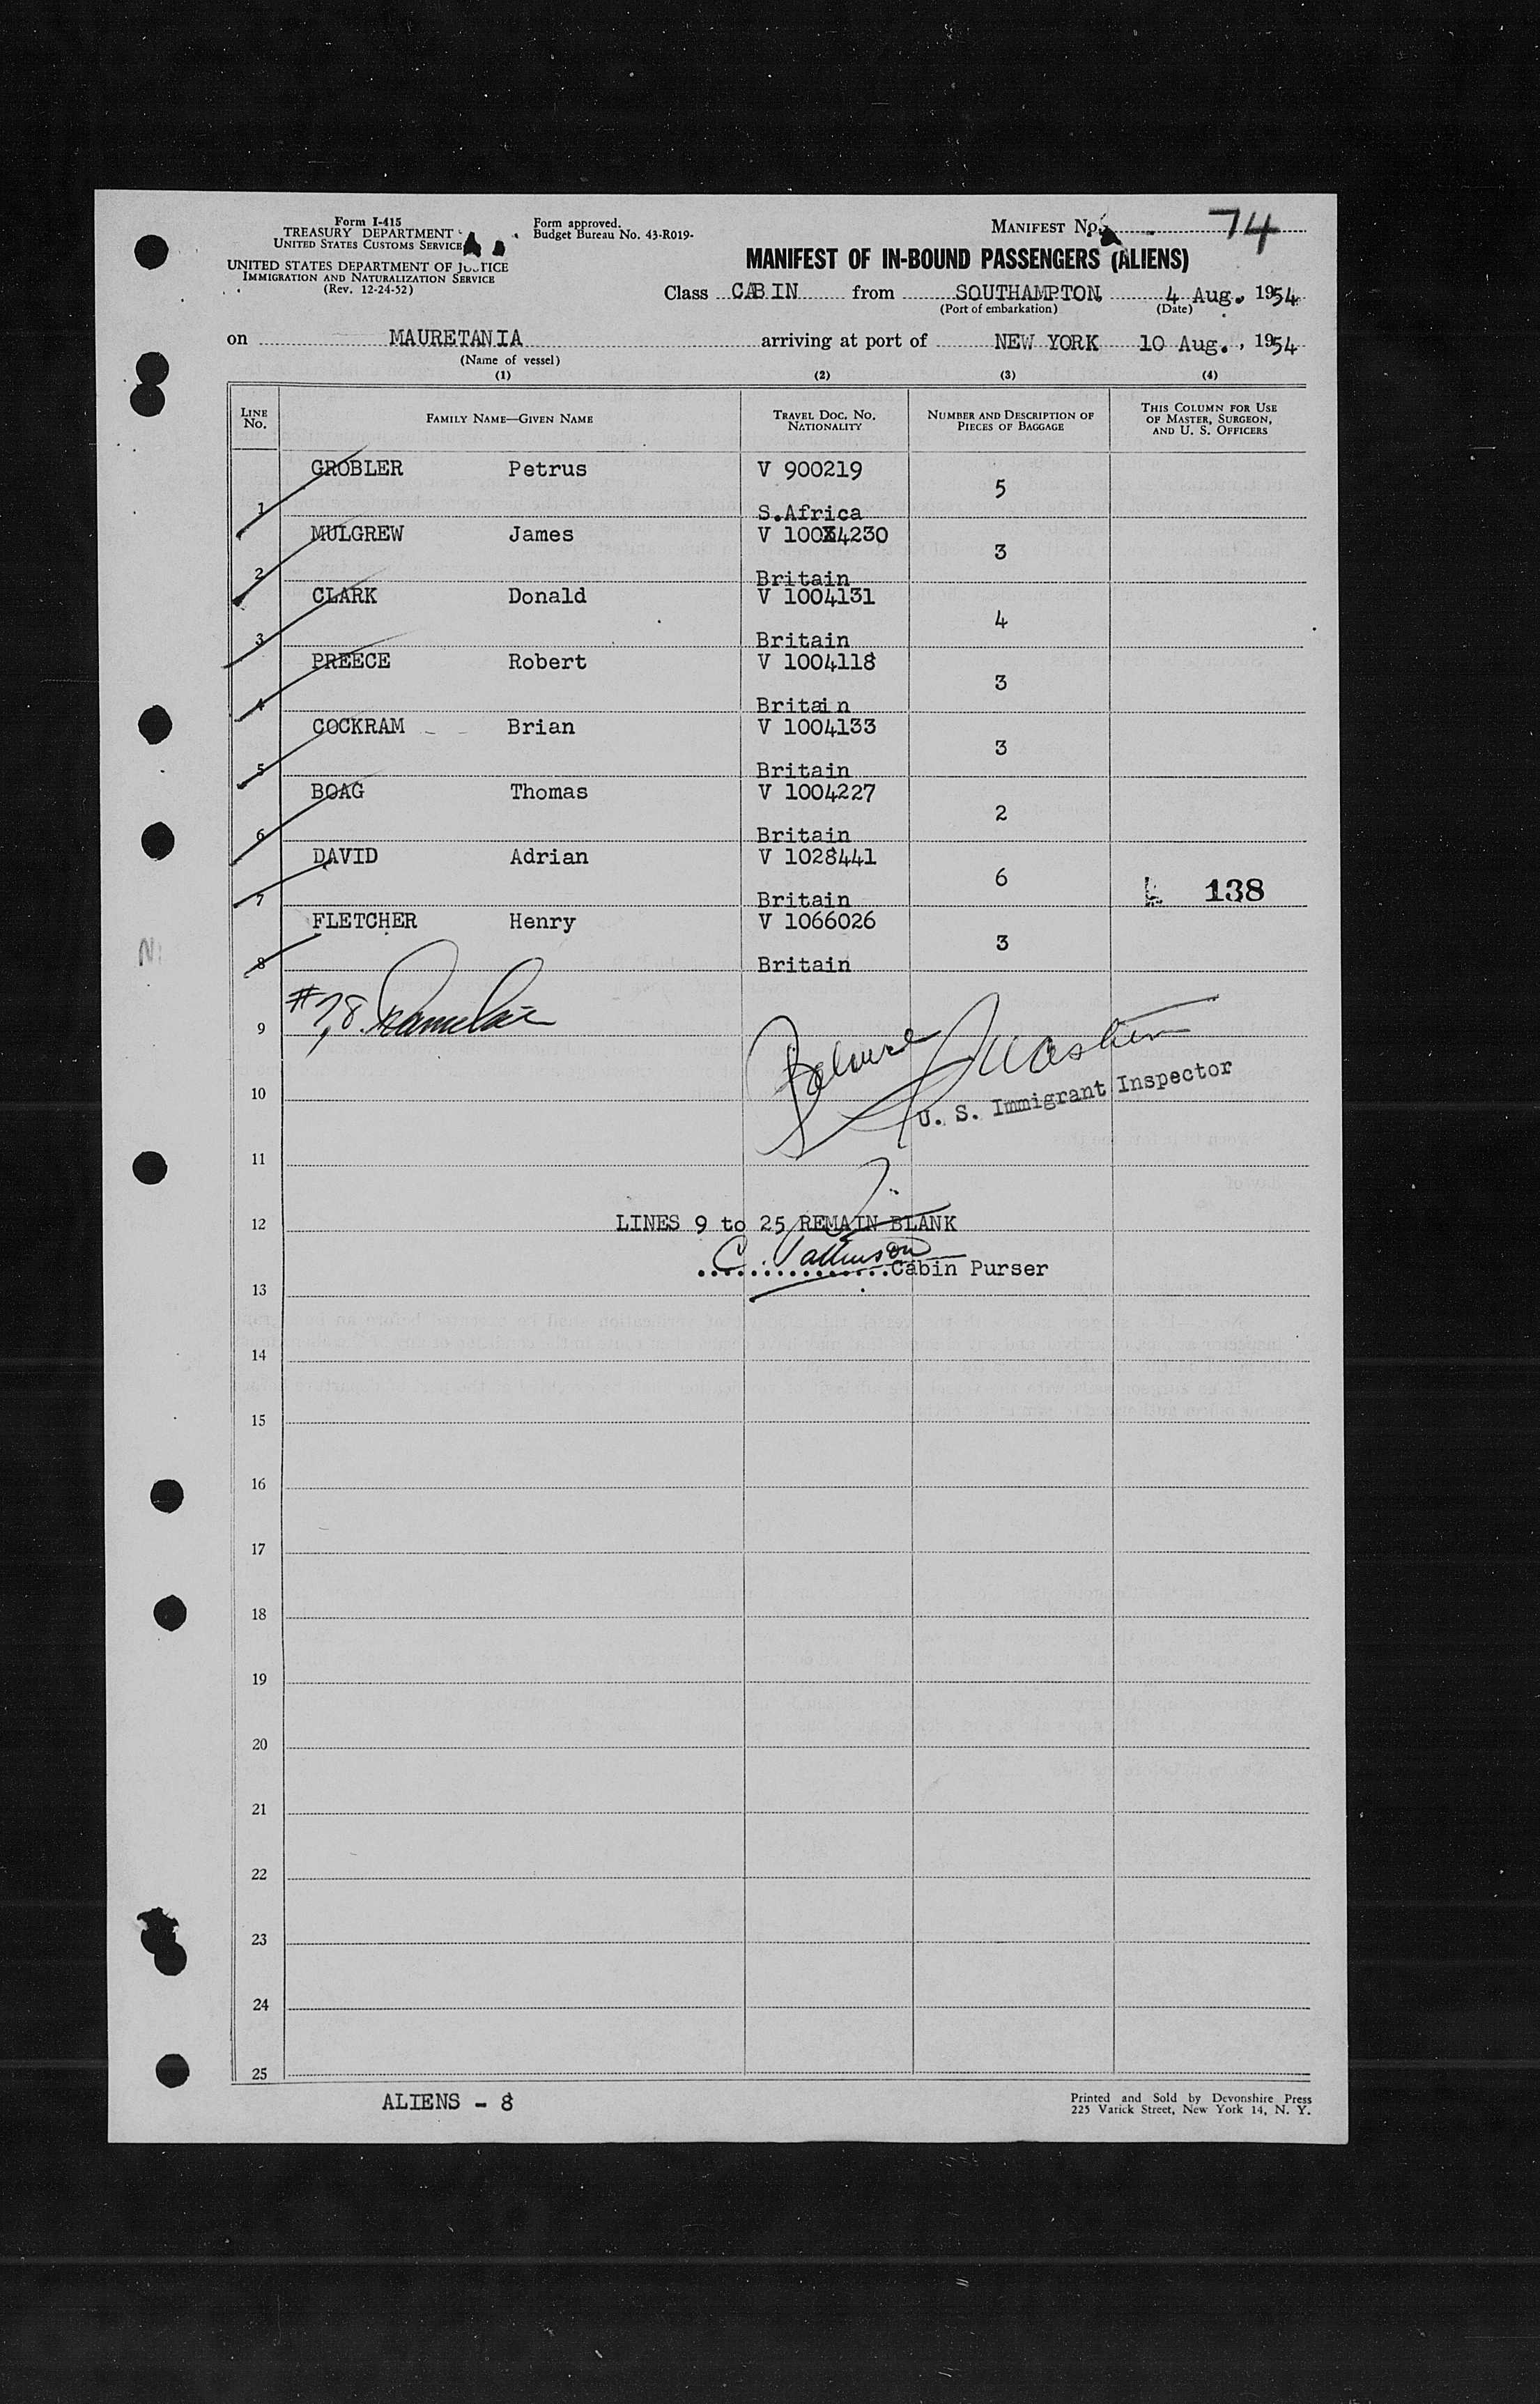 Form I-415
TREASURY DEPARTMENT
UNITED STATES CUSTOMS SERVICE
UNITED STATES DEPARTMENT OF JUSTICE
IMMIGRATION AND NATURALIZATION SERVICE
(Rev. 12-24-52)
Form approved.
Budget Bureau No. 43-R019-
MANIFEST No. 74
MANIFEST OF IN-BOUND PASSENGERS (ALIENS)
Class CABIN from SOUTHAMPTON, 4 Aug., 1954
(Port of embarkation) (Date)
on MAURETANIA arriving at port of NEW YORK 10 Aug., 1954
(Name of vessel)
(1) (2) (3) (4)
LINE No. FAMILY NAME—GIVEN NAME TRAVEL DOC. NO. NATIONALITY NUMBER AND DESCRIPTION OF PIECES OF BAGGAGE THIS COLUMN FOR USE OF MASTER, SURGEON, AND U. S. OFFICERS
1 GROBLER Petrus V 900219 S.Africa 5
2 MULGREW James V 1004230 Britain 3
3 CLARK Donald V 1004131 Britain 4
4 PREECE Robert V 1004118 Britain 3
5 COCKRAM Brian V 1004133 Britain 3
6 BOAG Thomas V 1004227 Britain 2
7 DAVID Adrian V 1028441 Britain 6 138
8 FLETCHER Henry V 1066026 Britain 3
#7,8.
9
Balance
10
U. S. Immigrant Inspector
11
12 LINES 9 to 25 REMAIN BLANK
Cabin Purser
13
14
15
16
17
18
19
20
21
22
23
24
25
ALIENS - 8
Printed and Sold by Devonshire Press
225 Varick Street, New York 14, N. Y.